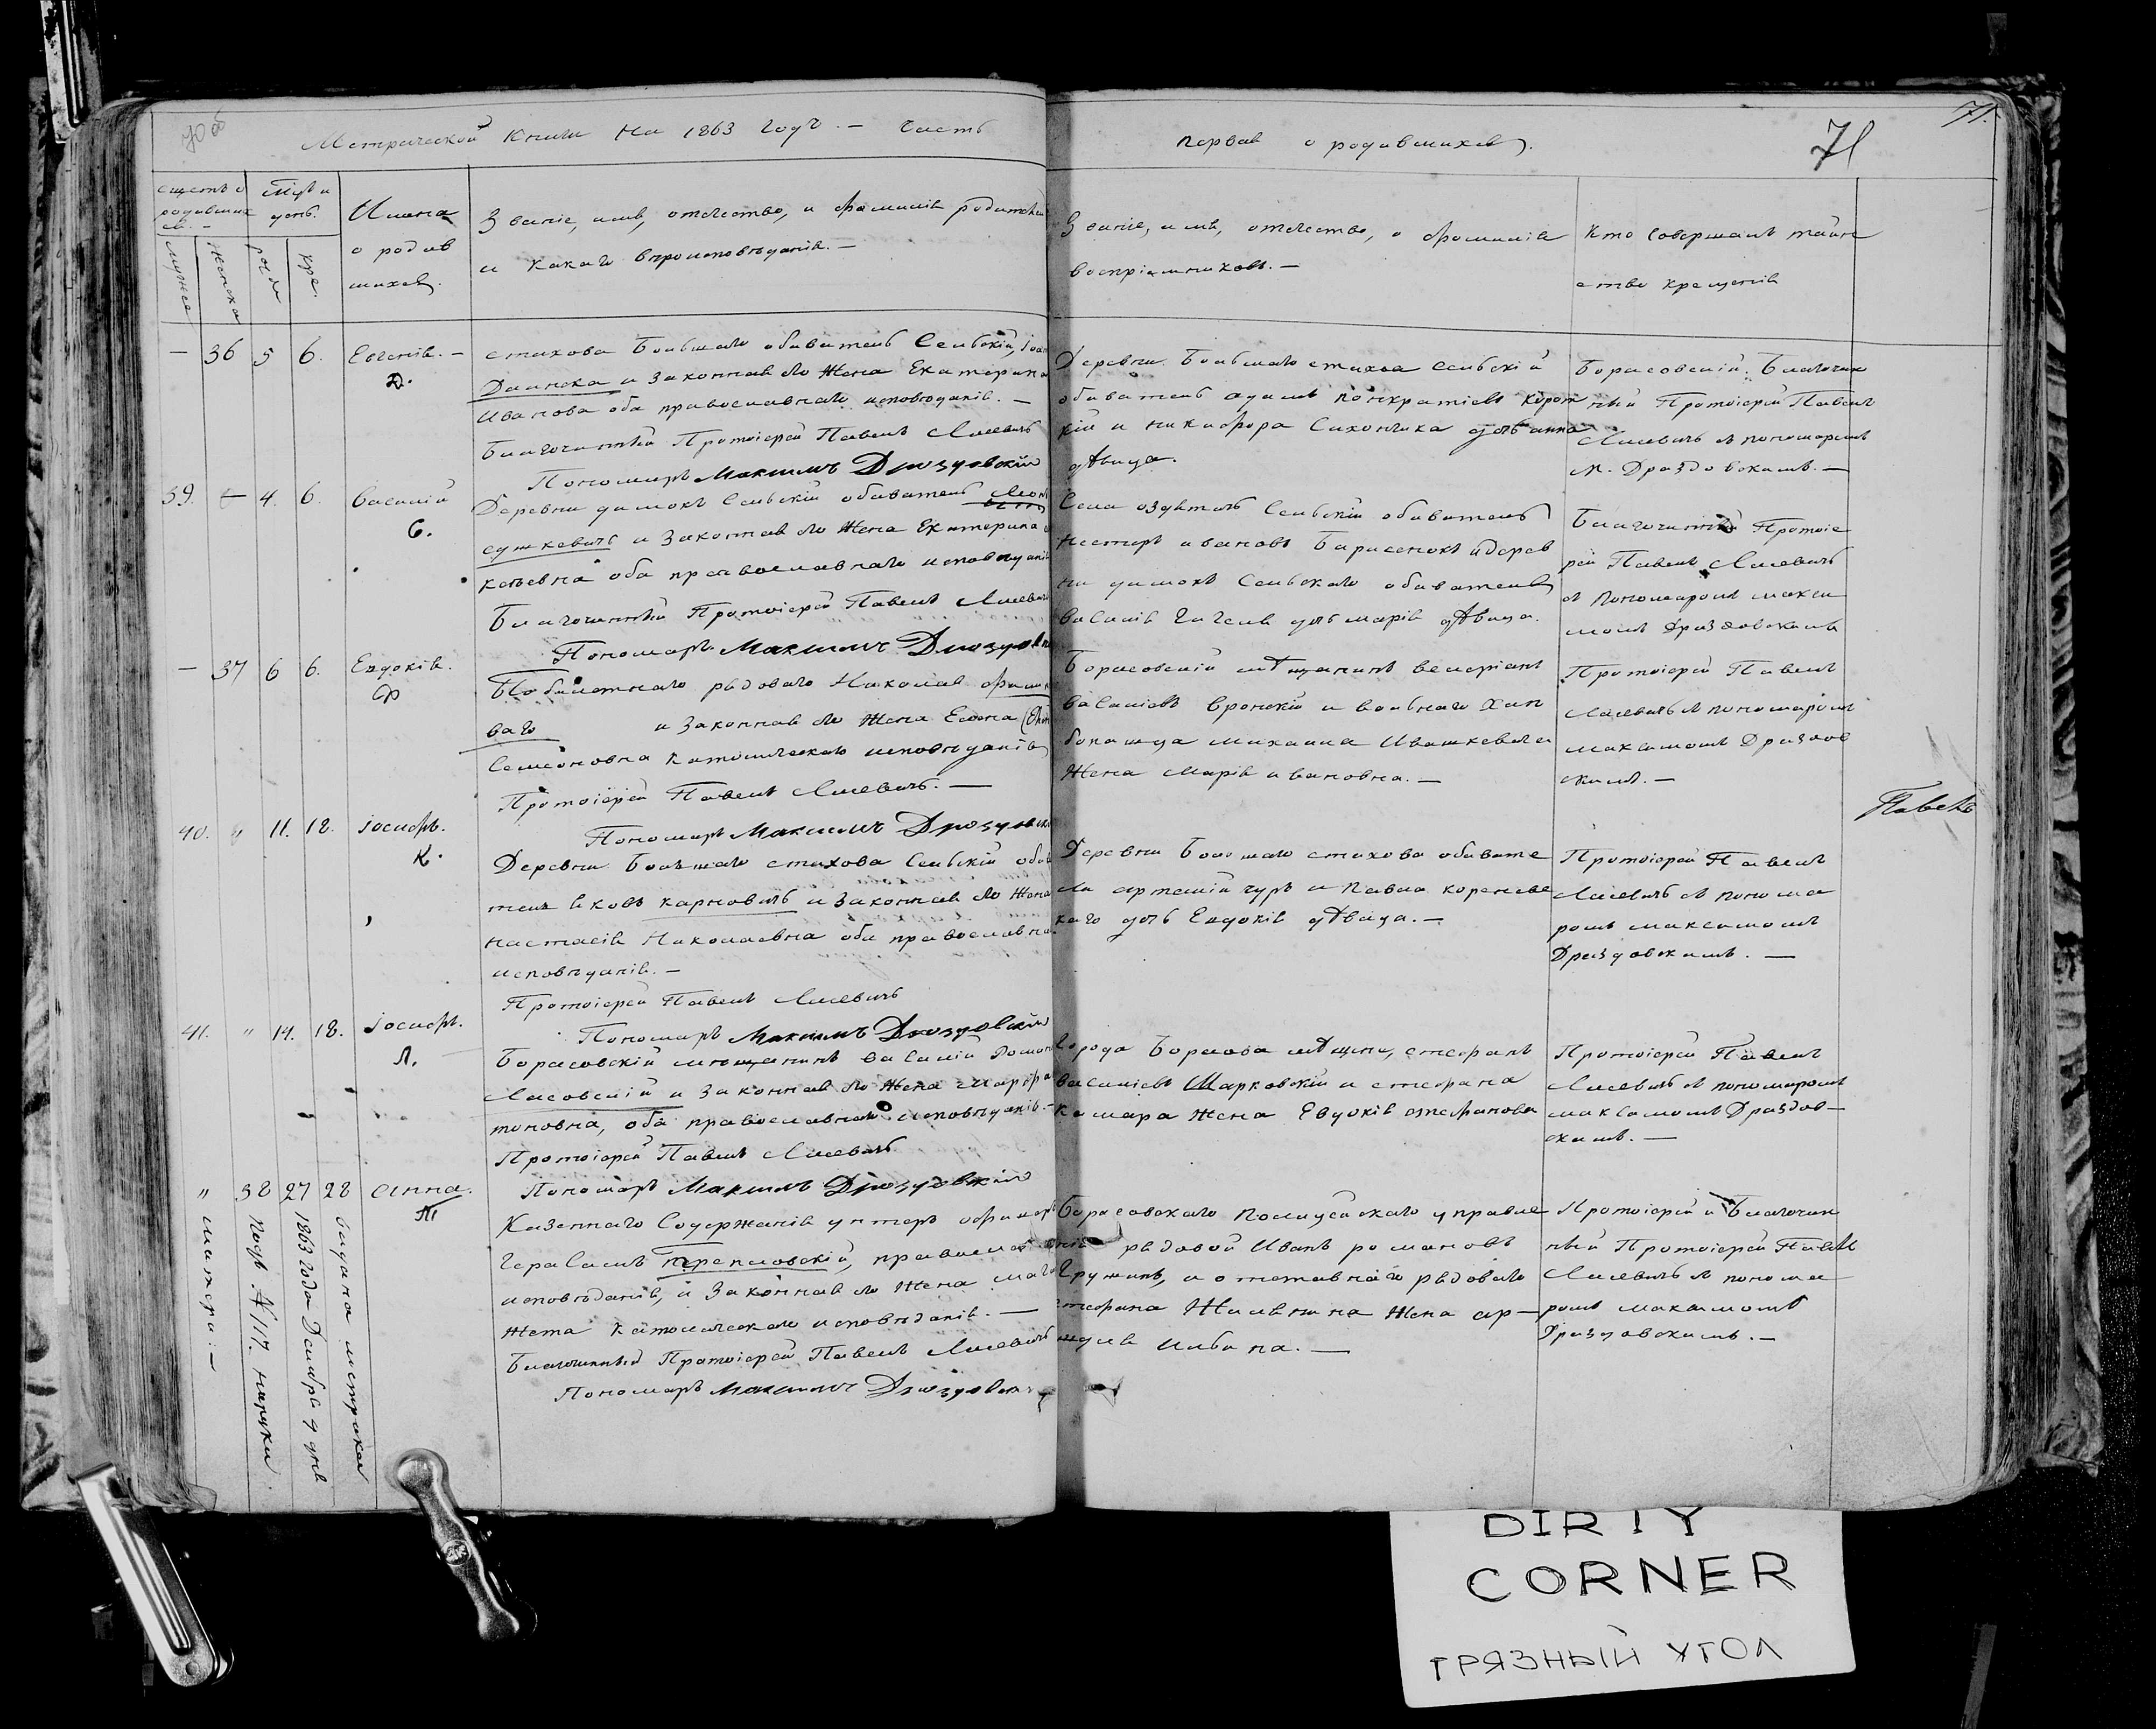 70 об
Метрической Книги на 1863 годъ. — Часть
первая о родившихся.
71
71.
счетъ
родивших
ся. —
Мужес
Женска
Мцъ и
день.
рожд
кре.
Имена
о родив
шихся.
Званіе, имя, отчество, и фамилія родителей
и какаго вѣроисповѣданія. —
Званіе, имя, отчество, и фамилія
воспріемниковъ. —
Кто Совершалъ таин
ство крещенія
— 36 5 6. Евгенія. —
Д.
стахова Большаго обыватель Сельскій,
и законная его Жена Екатерина
Иванова оба православнаго исповѣданія. —
Благочинный Протоіерей Павелъ Лисевичъ
Пономарь Максимъ Дроздовскій
Деревни Большаго стахова сельскій
обыватель адамъ
кій и никифора дочь анна
дѣвица.
Борисовскій Благочин
ный Протоіерей Павелъ
Лисевичъ съ пономаремъ
М. Дроздовскимъ. —
39. — 4. 6. Василій
С.
Деревни димокъ Сельскій обыватель
сушкевичъ и законная его Жена Екатерина
оба православнаго исповѣданія
Благочинный Протоіерей Павелъ Лисевичъ
Пономарь Максимъ Дроздовскій
Села Сельскій обыватель
несторъ ивановъ Барисенокъ и дерев
ни димокъ Сельскаго обывателя
Василія дочь марія дѣвица.
Благочинный Протоіе
рей Павелъ Лисевичъ
съ пономаремъ макси
момъ Дроздовскимъ
— 37 6 6. Евдокія.
Ф
рядоваго Николая
ваго и законная его Жена Елена
Семеновна католическаго исповѣданія
Протоіерей Павелъ Лисевичъ. —
Пономарь Максимъ Дроздовскій
Борисовскій мѣщанинъ валеріанъ
васильевъ вронскій и вольнаго хлѣ
бопашца михаила Ивашкевича
Жена Марія ивановна. —
Протоіерей Павелъ
Лисевичъ съ пономаремъ
максимомъ Дроздов
скимъ. —
Павелъ
40. " 11. 18. іосифъ.
К.
Деревни Большаго стахова Сельскій обыва
тель яковъ карповичъ и законная его Жена
настасія Николаевна оба православнаго
исповѣданія. —
Протоіерей Павелъ Лисевичъ
Пономарь Максимъ Дроздовскій
Деревни Большаго стахова обывате
ли артемій чуръ и павла коренев
каго дочь Евдокія дѣвица. —
Протоіерей Павелъ
Лисевичъ съ понома
ремъ максимомъ
Дроздовскимъ. —
41. " 14. 18. іосифъ.
Л.
Борисовскій мѣщанинъ василій
Лисовскій и законная его Жена марфа
тоновна, оба православнаго исповѣданія. —
Протоіерей Павелъ Лисевичъ
Пономарь Максимъ Дроздовскій
Города Борисова мѣщане, стефанъ
васильевъ Шарковскій и стефана
Комара Жена Евдокія стефанова
Протоіерей Павелъ
Лисевичъ съ пономаремъ
максимомъ Дроздов—
скимъ. —
" 38 27 28 анна.
П
Казеннаго Содержанія унтеръ офицеръ
Герасимъ православнаго
исповѣданія, и законная его Жена
католическаго исповѣданія. —
Благочинный Протоіерей Павелъ Лисевичъ
Пономарь Максимъ Дроздовскій
Борисовскаго Полицейскаго управле
нія рядовой Иванъ романовъ
и отставнаго рядоваго
стефана Жена
Протоіерей и Благочин
ный Протоіерей Павелъ
Лисевичъ съ понома
ремъ максимомъ
Дроздовскимъ. —
выдана метрика
1863 года Декабря 9 дня
подъ № 117. наруки
матери: —
DIRTY
CORNER
ГРЯЗНЫЙ УГОЛ